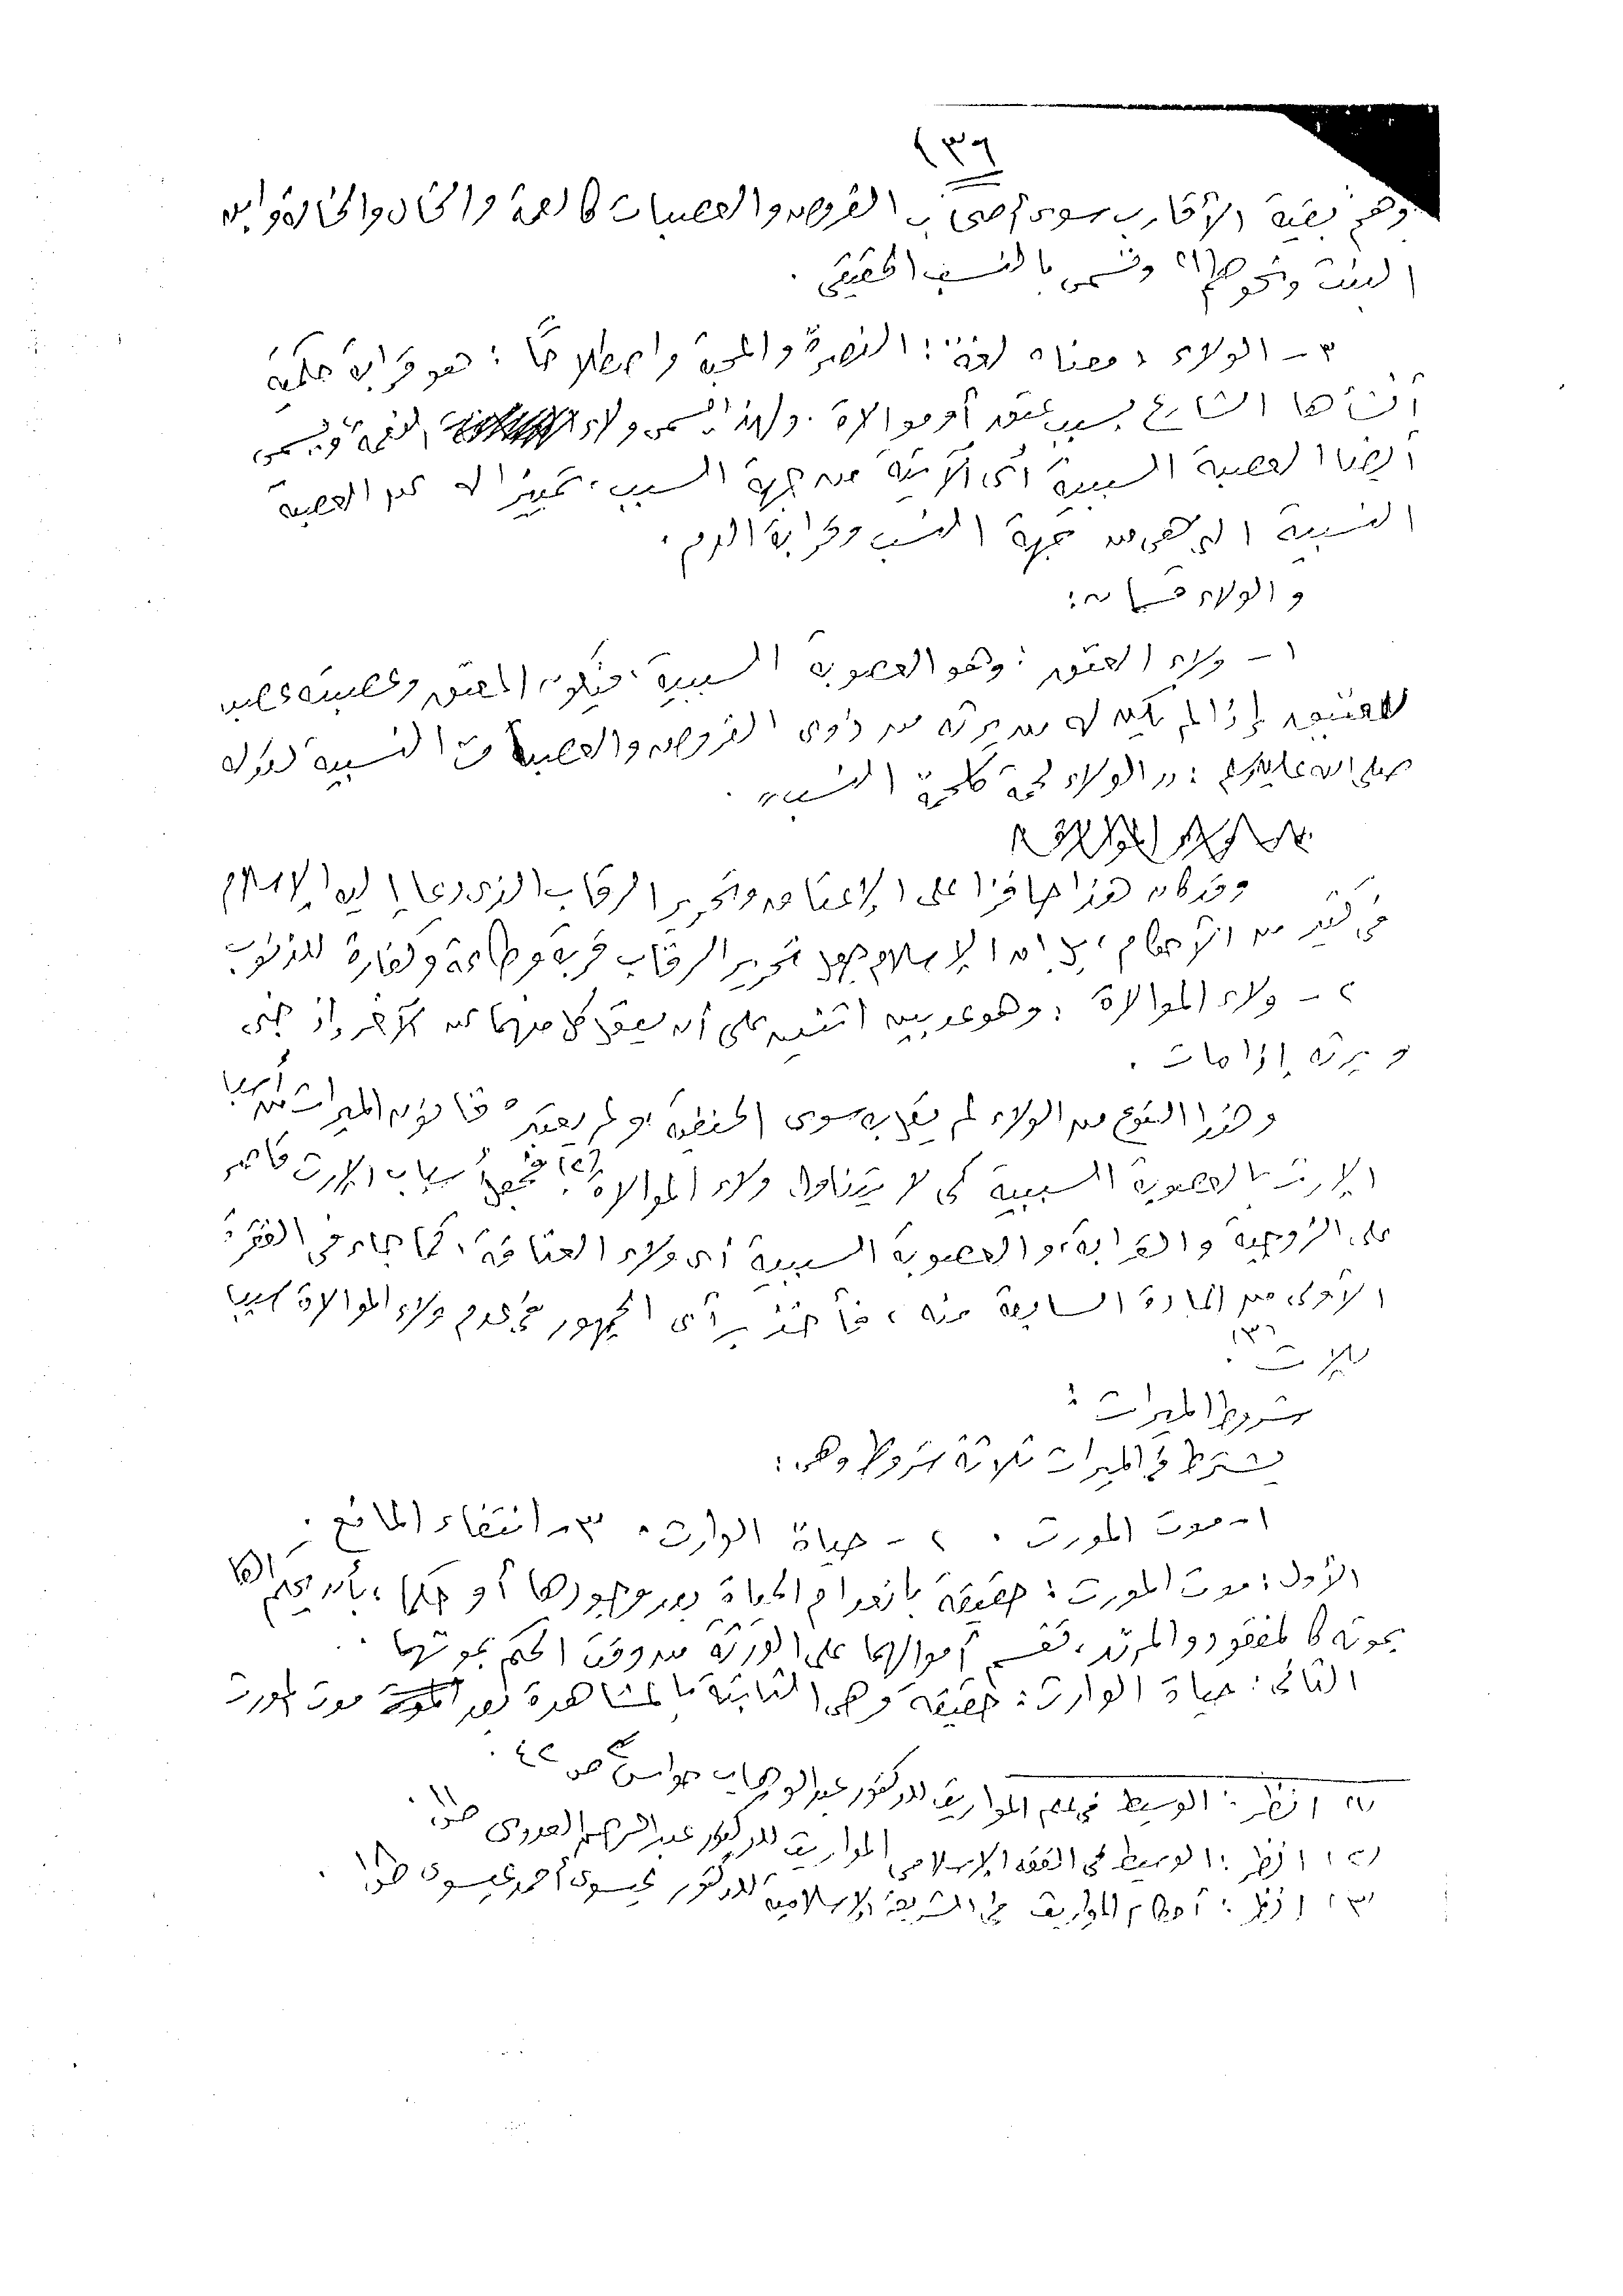 ١٣٦
وهم بقية الأقارب سوى أصحاب الفروض والعصبات كالعمة والخال والخالة وابن
البنت ونحوهم(١) وتسمى بالنسب الحقيقى .
٣ - الولاء : معناه لغة : النصرة والمحبة واصطلاحًا : هو قرابة حكمية
أنشأها الشارع بسبب عتق أو موالاة . ولهذا يسمى ولاء النعمة ويسمى
أيضا العصبة السببية أى الآتية من جهة السبب ، تمييزا له عن العصبة
النسبية التى هى من جهة النسب وقرابة الدم .
والولاء قسمان :
١ - ولاء العتق : وهو العصوبة السببية ، فيكون المعتق وعصبته عصبة
للعتيق إذا لم يكن له من يرثه من ذوى الفروض والعصبات النسبية لقوله
صلى الله عليه وسلم : " الولاء لحمة كلحمة النسب " .
وقد كان هذا حافزا على الإعتاق وتحرير الرقاب الذى دعا إليه الإسلام
فى كثير من الأحكام ، بل إن الإسلام جعل تحرير الرقاب قربة وطاعة وكفارة للذنوب
٢ - ولاء الموالاة : وهو عقد بين اثنين على أن يعقل كل منهما عن الآخر إذا جنى
ويرثه إذا مات .
وهذا النوع من الولاء لم يقل به سوى الحنفية ولم يعتبره قانون الميراث من أسباب
الإرث بالعصوبة السببية كى لا يتناول ولاء الموالاة(٢) . فجعل أسباب الإرث قاصرة
على الزوجية والقرابة والعصوبة السببية أى ولاء العتاقة ، كما جاء فى الفقرة
الأولى من المادة السابعة منه ، فأخذ برأى الجمهور فى عدم ولاء الموالاة سببا
للإرث(٣) .
شروط الميراث :
يشترط فى الميراث ثلاثة شروط وهى :
١ - موت المورث . ٢ - حياة الوارث . ٣ - انتفاء المانع .
الأول : موت المورث : حقيقة بانعدام الحياة بعد وجودها أو حكما ، بأن يحكم القاضى
بموته كالمفقود والمرتد ، تقسم أموالهما على الورثة من وقت الحكم بموتهما .
الثانى : حياة الوارث : حقيقة وهى الثابتة بالمشاهدة بعد موت المورث
(١) انظر : الوسيط فى علم المواريث للدكتور عبد الوهاب حواس ص ٤٢ .
(٢) انظر : الوسيط فى الفقه الإسلامى المواريث للدكتور عبد الرحمن العدوى
(٣) انظر : أحكام المواريث فى الشريعة الإسلامية للدكتور عيسوى أحمد عيسوى